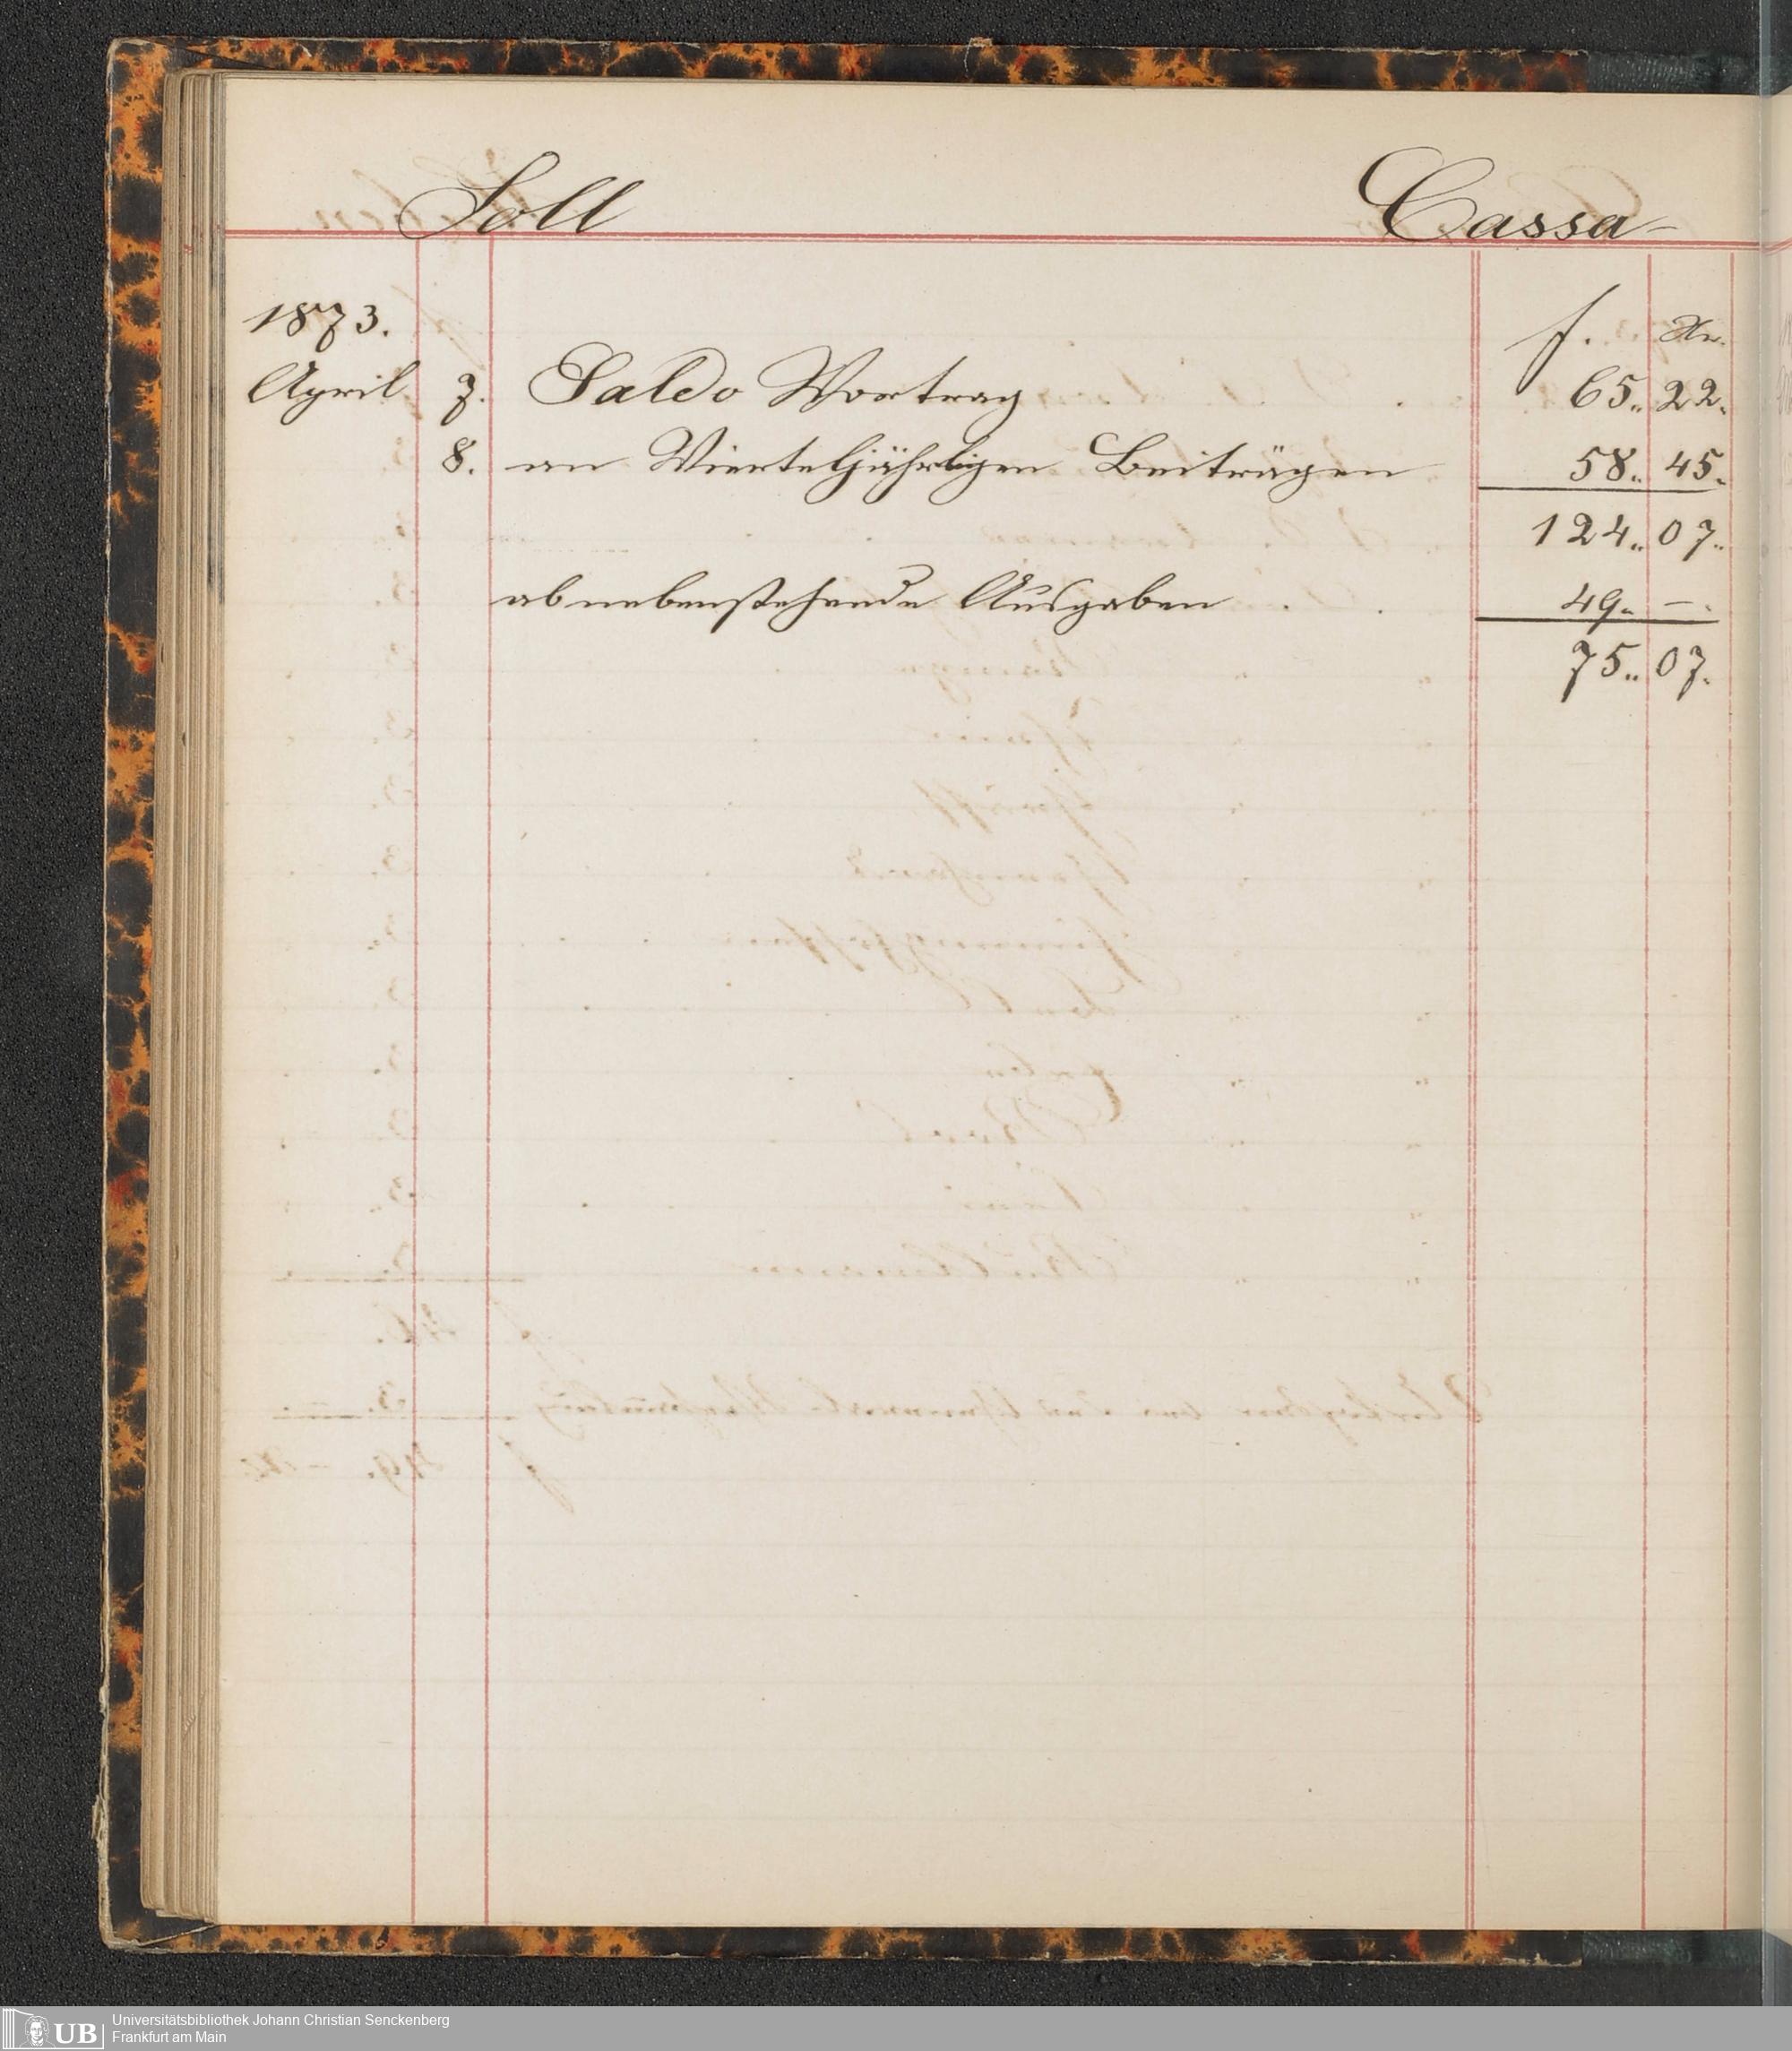 Soll Cassa
1873. f. Xr.
April 7. Saldo Vortrag 65.. 22.
8. an Vierteljährligen Beiträgen 58.. 45.
124.. 07..
ab nebenstehende Ausgaben . . 49.. —.
75.. 07.
UB
Universitätsbibliothek Johann Christian Senckenberg
Frankfurt am Main